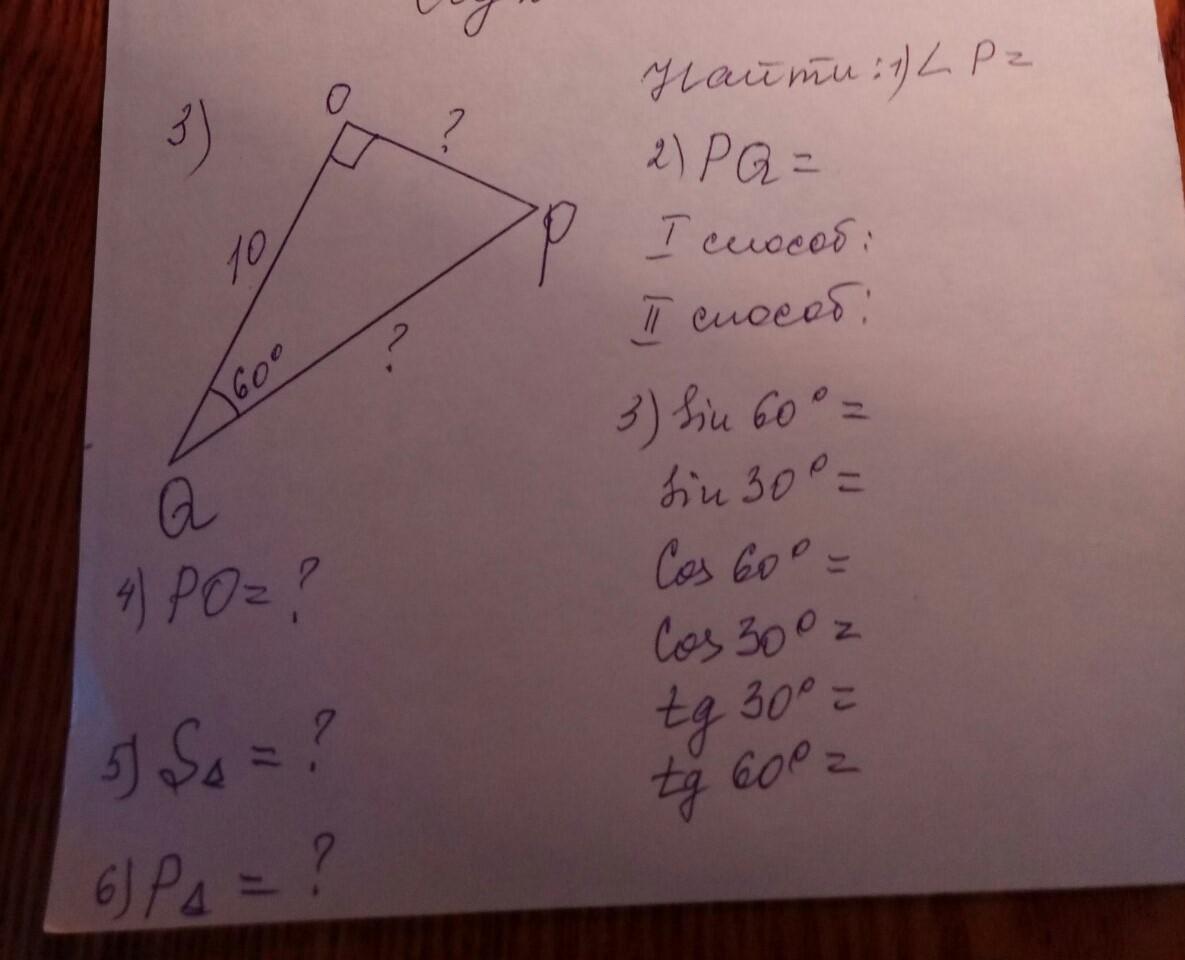 3)
O
?
10
P
60°
?
Q
4) PO = ?
5) S△ = ?
6) P△ = ?
Найти: 1) ∠ P =
2) PQ =
I способ:
II способ:
3) Sin 60° =
Sin 30° =
Cos 60° =
Cos 30° =
tg 30° =
tg 60° =